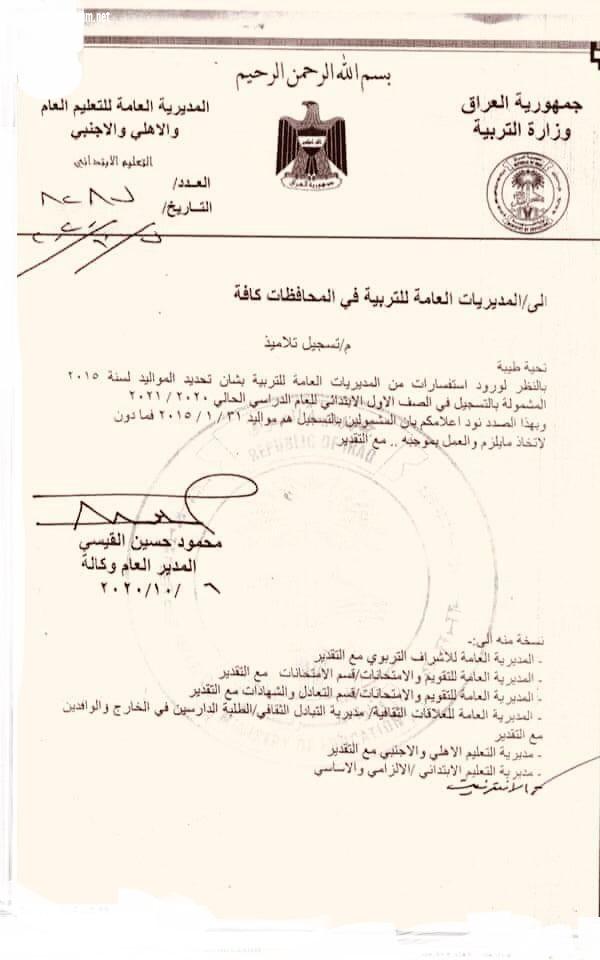 بسم الله الرحمن الرحيم
جمهورية العراق
وزارة التربية
المديرية العامة للتعليم العام
والاهلي والاجنبي
التعليم الابتدائي
العدد/
التاريخ/
جمهورية العراق
الى/المديريات العامة للتربية في المحافظات كافة
م/تسجيل تلاميذ
تحية طيبة
بالنظر لورود استفسارات من المديريات العامة للتربية بشان تحديد المواليد لسنة ٢٠١٥
المشمولة بالتسجيل في الصف الاول الابتدائي للعام الدراسي الحالي ٢٠٢٠ / ٢٠٢١
وبهذا الصدد نود اعلامكم بان المشمولين بالتسجيل هم مواليد ٣١ / ١ / ٢٠١٥ فما دون
لاتخاذ مايلزم والعمل بموجبه .. مع التقدير
محمود حسين القيسي
المدير العام وكالة
٦ /١٠/ ٢٠٢٠
نسخة منه الى:-
- المديرية العامة للاشراف التربوي مع التقدير
- المديرية العامة للتقويم والامتحانات/قسم الامتحانات مع التقدير
- المديرية العامة للتقويم والامتحانات/قسم التعادل والشهادات مع التقدير
- المديرية العامة للعلاقات الثقافية/ مديرية التبادل الثقافي/الطلبة الدارسين في الخارج والوافدين
مع التقدير
- مديرية التعليم الاهلي والاجنبي مع التقدير
- مديرية التعليم الابتدائي /الالزامي والاساسي